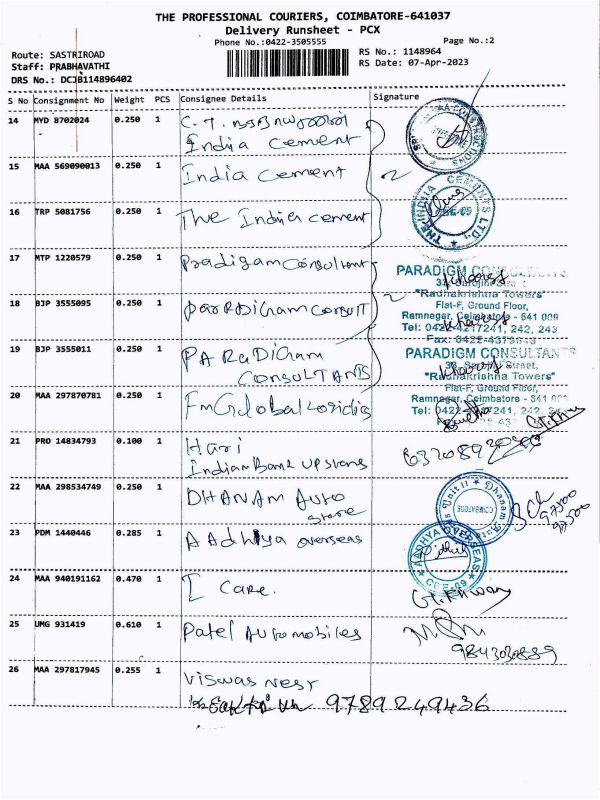 THE PROFESSIONAL COURIERS, COIMBATORE-641037
Delivery Runsheet - PCX
Phone No.:0422-3505555
Page No.:2
Route: SASTRIROAD
Staff: PRABHAVATHI
DRS No.: DCJB114896402
RS No.: 1148964
RS Date: 07-Apr-2023
S No Consignment No Weight PCS Consignee Details Signature
14 MYD 8702024 0.250 1 C.T.
India cement
15 MAA 569090013 0.250 1 India cement
16 TRP 5081756 0.250 1 The India cement
THE INDIA CEMENTS LTD.,
17 MTP 1220579 0.250 1 Pradigam Consultant
PARADIGM CONSULTANTS
"Radhakrishna Towers"
Flat-F, Ground Floor,
18 BJP 3555095 0.250 1 ParRDigham Consult
Ramnagar, Coimbatore - 641 009
Tel: 0422-4217241, 242, 243
19 BJP 3555011 0.250 1 PARaDigham
Consultants
PARADIGM CONSULTANTS
"Radhakrishna Towers"
Flat-F, Ground Floor,
Ramnagar, Coimbatore - 641 009
20 MAA 297870781 0.250 1 FmGlobal
21 PRO 14834793 0.100 1 Hari
Indian Bank upstairs
22 MAA 298534749 0.250 1 DHANAM Auto
store
23 PDM 1440446 0.285 1 AAdhya overseas
AADHYA OVERSEAS
CBE-09
24 MAA 940191162 0.470 1 I care.
25 UMG 931419 0.610 1 Patel Automobiles
9843030889
26 MAA 297817945 0.255 1 Viswas Nest
9789249436